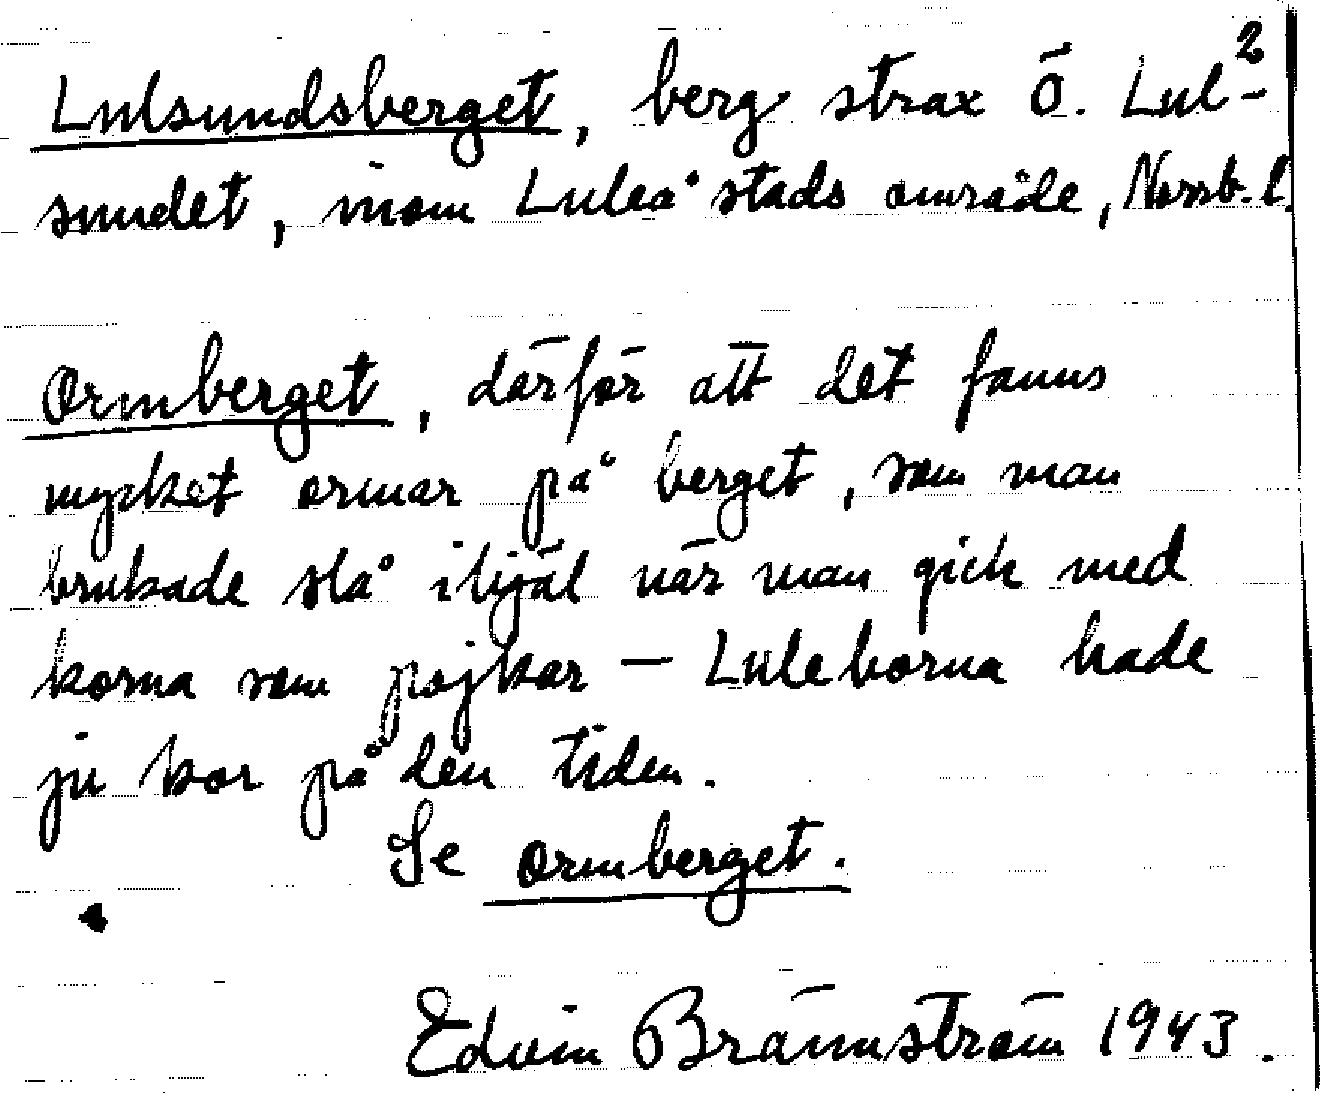 Lulsundsberget, berg strax Ö. Lul²-
sundet, inom Luleå stads område, Norrb. l.
Ormberget, därför att det fanns
mycket ormar på berget, som man
brukade slå ihjäl när man gick med
korna som pojkar — Luleborna hade
ju kor på den tiden.
Se Ormberget.
Edvin Brännström 1943.